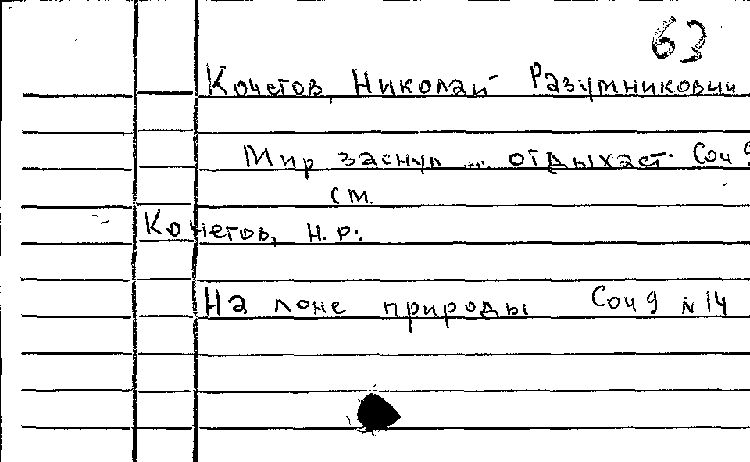 63
Кочетов, Николай Разумникович
Мир заснул ... отдыхает. Соч 9
см.
Кочетов, Н. Р.:
На лоне природы Соч 9 N 14